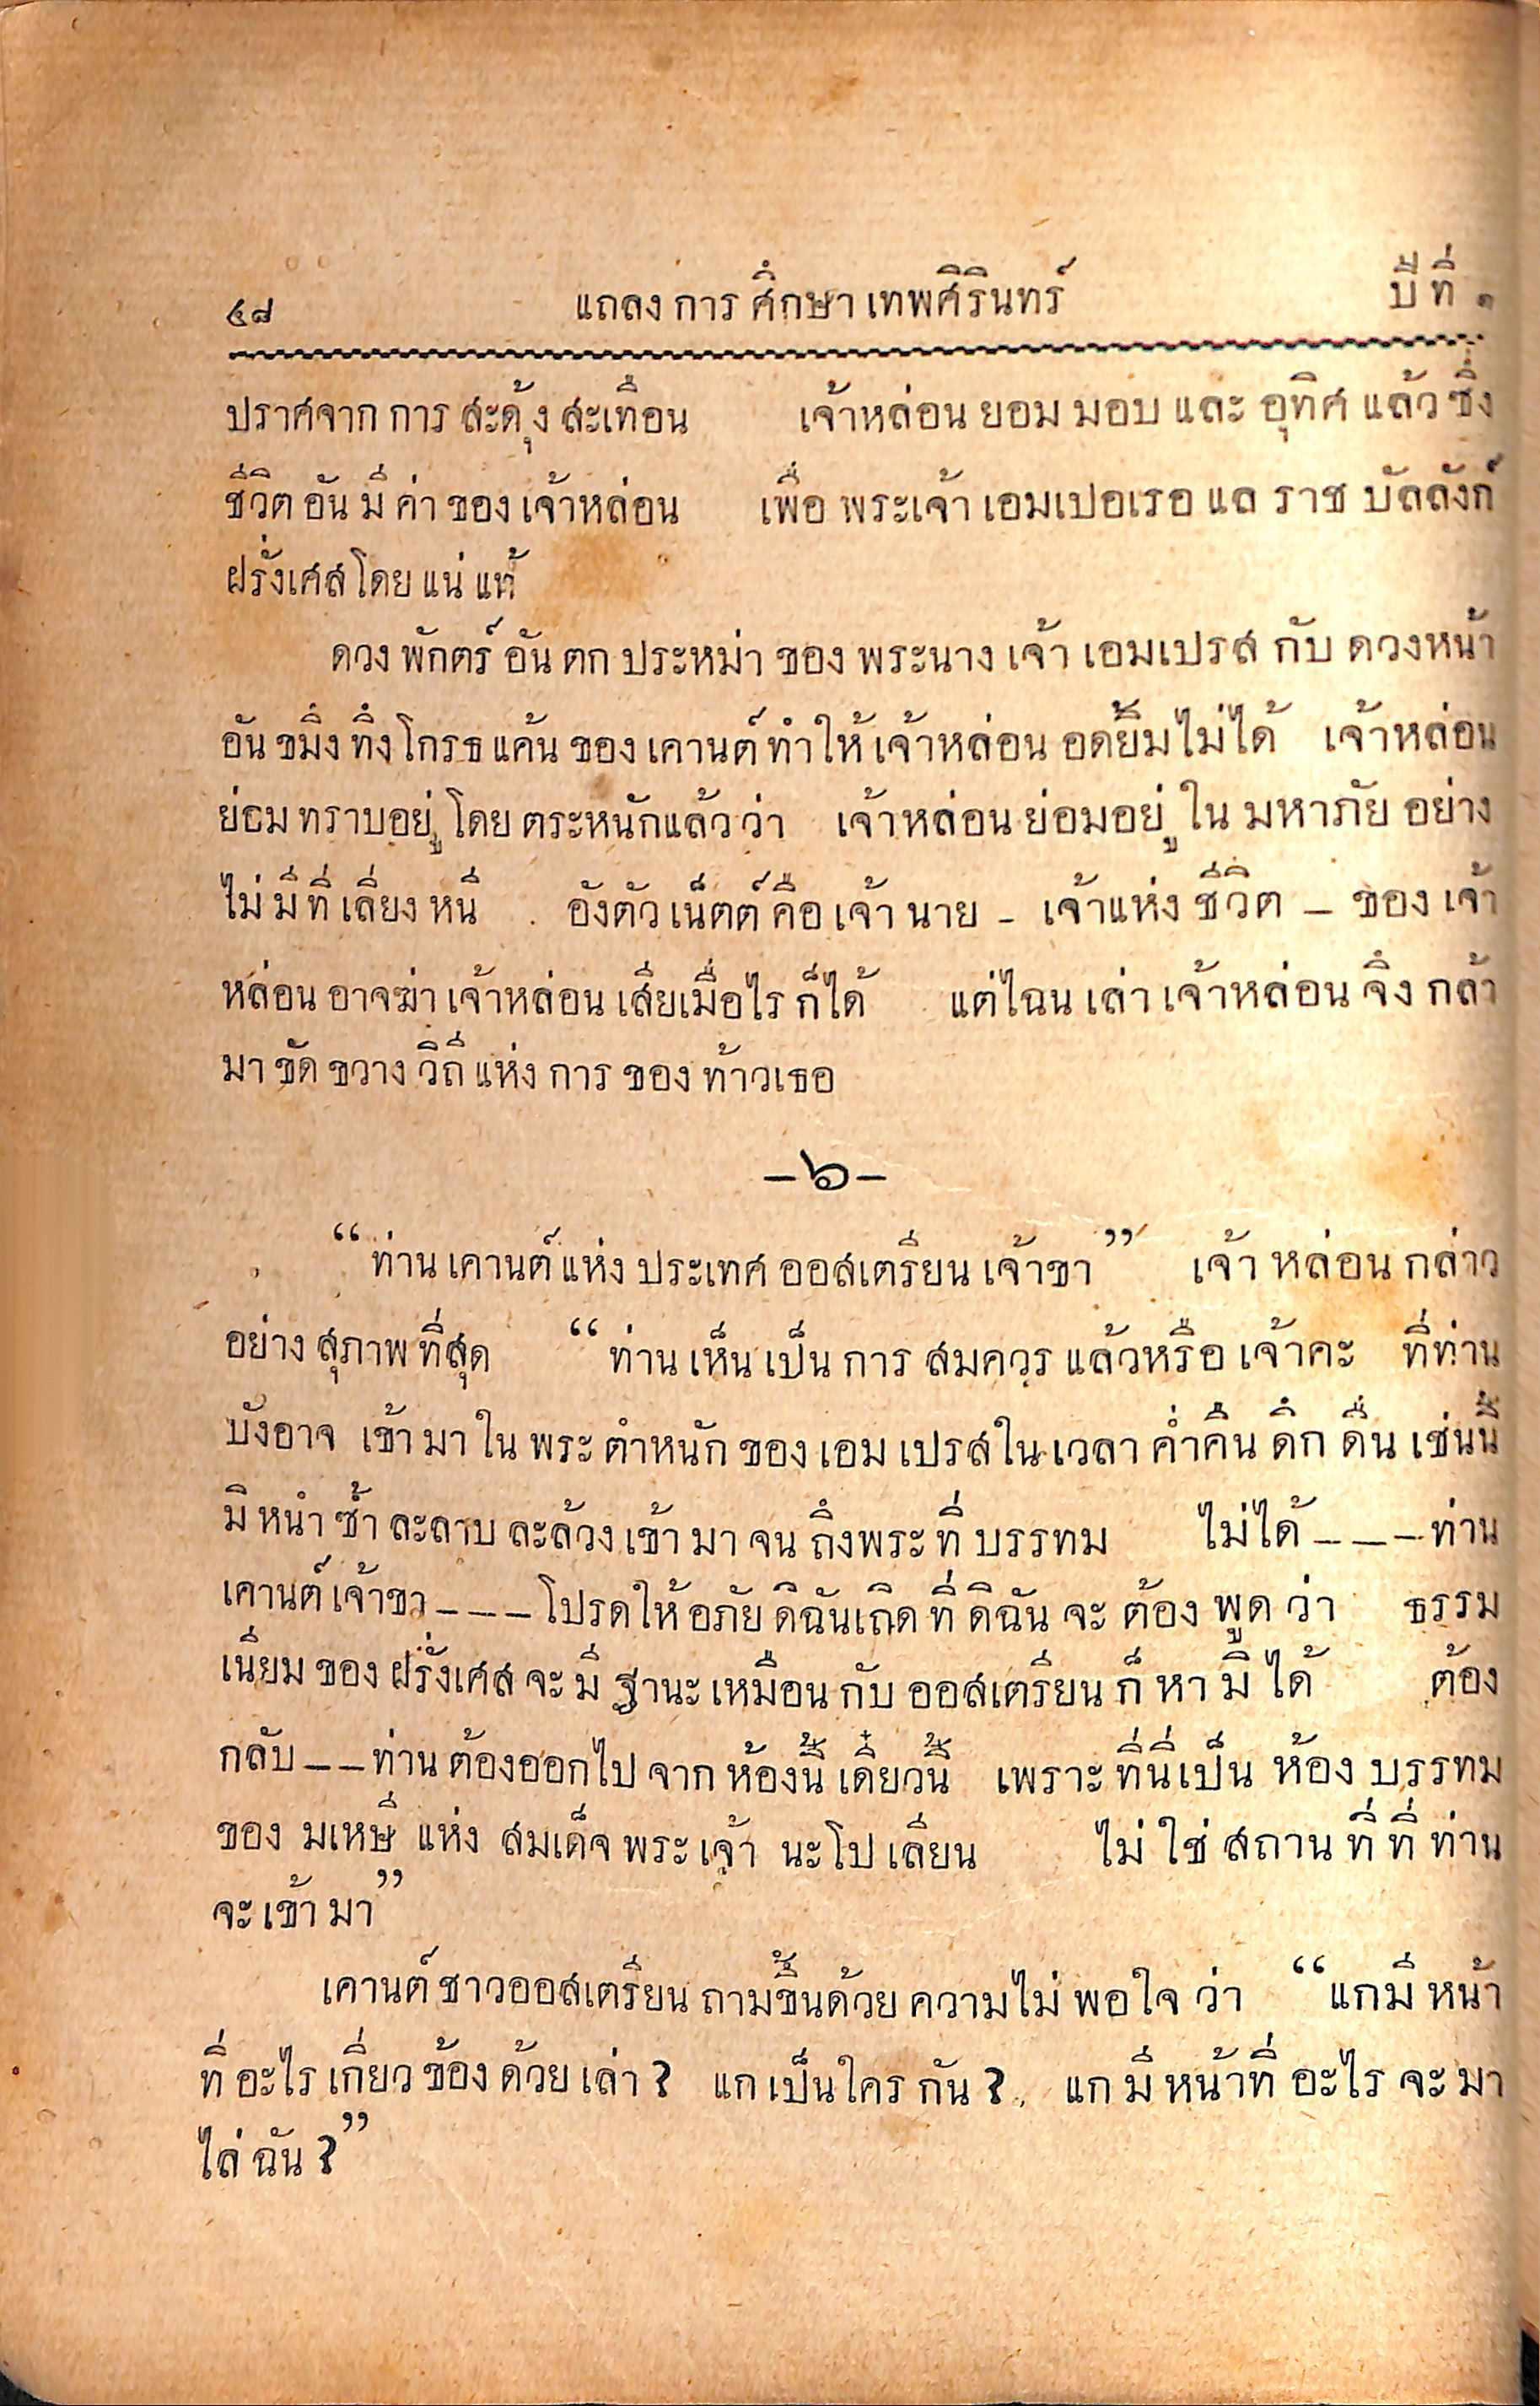 ๔๘ แถลงการศึกษาเทพศิรินทร์ ปีที่ ๑
ปราศจากการสะดุ้งสะเทือน เจ้าหล่อนยอมมอบและอุทิศแล้วซึ่ง
ชีวิตอันมีค่าของเจ้าหล่อน เพื่อพระเจ้าเอมเปอเรอแลราชบัลลังก์
ฝรั่งเศสโดยแน่แท้
ดวงพักตร์อันตกประหม่าของพระนางเจ้าเอมเปรสกับดวงหน้า
อันขมึงทึงโกรธแค้นของเคานต์ทำให้เจ้าหล่อนอดยิ้มไม่ได้ เจ้าหล่อน
ย่อมทราบอยู่โดยตระหนักแล้วว่า เจ้าหล่อนย่อมอยู่ในมหาภัยอย่าง
ไม่มีที่เลี่ยงหนี อังตัวเน็ตต์คือเจ้านาย - เจ้าแห่งชีวิต - ของเจ้า
หล่อนอาจฆ่าเจ้าหล่อนเสียเมื่อไรก็ได้ แต่ไฉนเล่าเจ้าหล่อนจึงกล้า
มาขัดขวางวิถีแห่งการของท้าวเธอ
-๖-
“ท่านเคานต์แห่งประเทศออสเตรียนเจ้าขา” เจ้าหล่อนกล่าว
อย่างสุภาพที่สุด “ท่านเห็นเป็นการสมควรแล้วหรือเจ้าคะ ที่ท่าน
บังอาจ เข้ามาในพระตำหนักของเอมเปรสในเวลาค่ำคืนดึกดื่นเช่นนี้
มิหนำซ้ำละลาบละล้วงเข้ามาจนถึงพระที่บรรทม ไม่ได้---ท่าน
เคานต์เจ้าขา---โปรดให้อภัยดิฉันเถิดที่ดิฉันจะต้องพูดว่า ธรรม
เนียมของฝรั่งเศสจะมีฐานะเหมือนกับออสเตรียนก็หามิได้ ต้อง
กลับ--ท่านต้องออกไปจากห้องนี้เดี๋ยวนี้ เพราะที่นี่เป็นห้องบรรทม
ของมเหษีแห่งสมเด็จพระเจ้านะโปเลียน ไม่ใช่สถานที่ที่ท่าน
จะเข้ามา”
เคานต์ชาวออสเตรียนถามขึ้นด้วยความไม่พอใจว่า “แกมีหน้า
ที่อะไรเกี่ยวข้องด้วยเล่า? แกเป็นใครกัน? แกมีหน้าที่อะไรจะมา
ไล่ฉัน?”